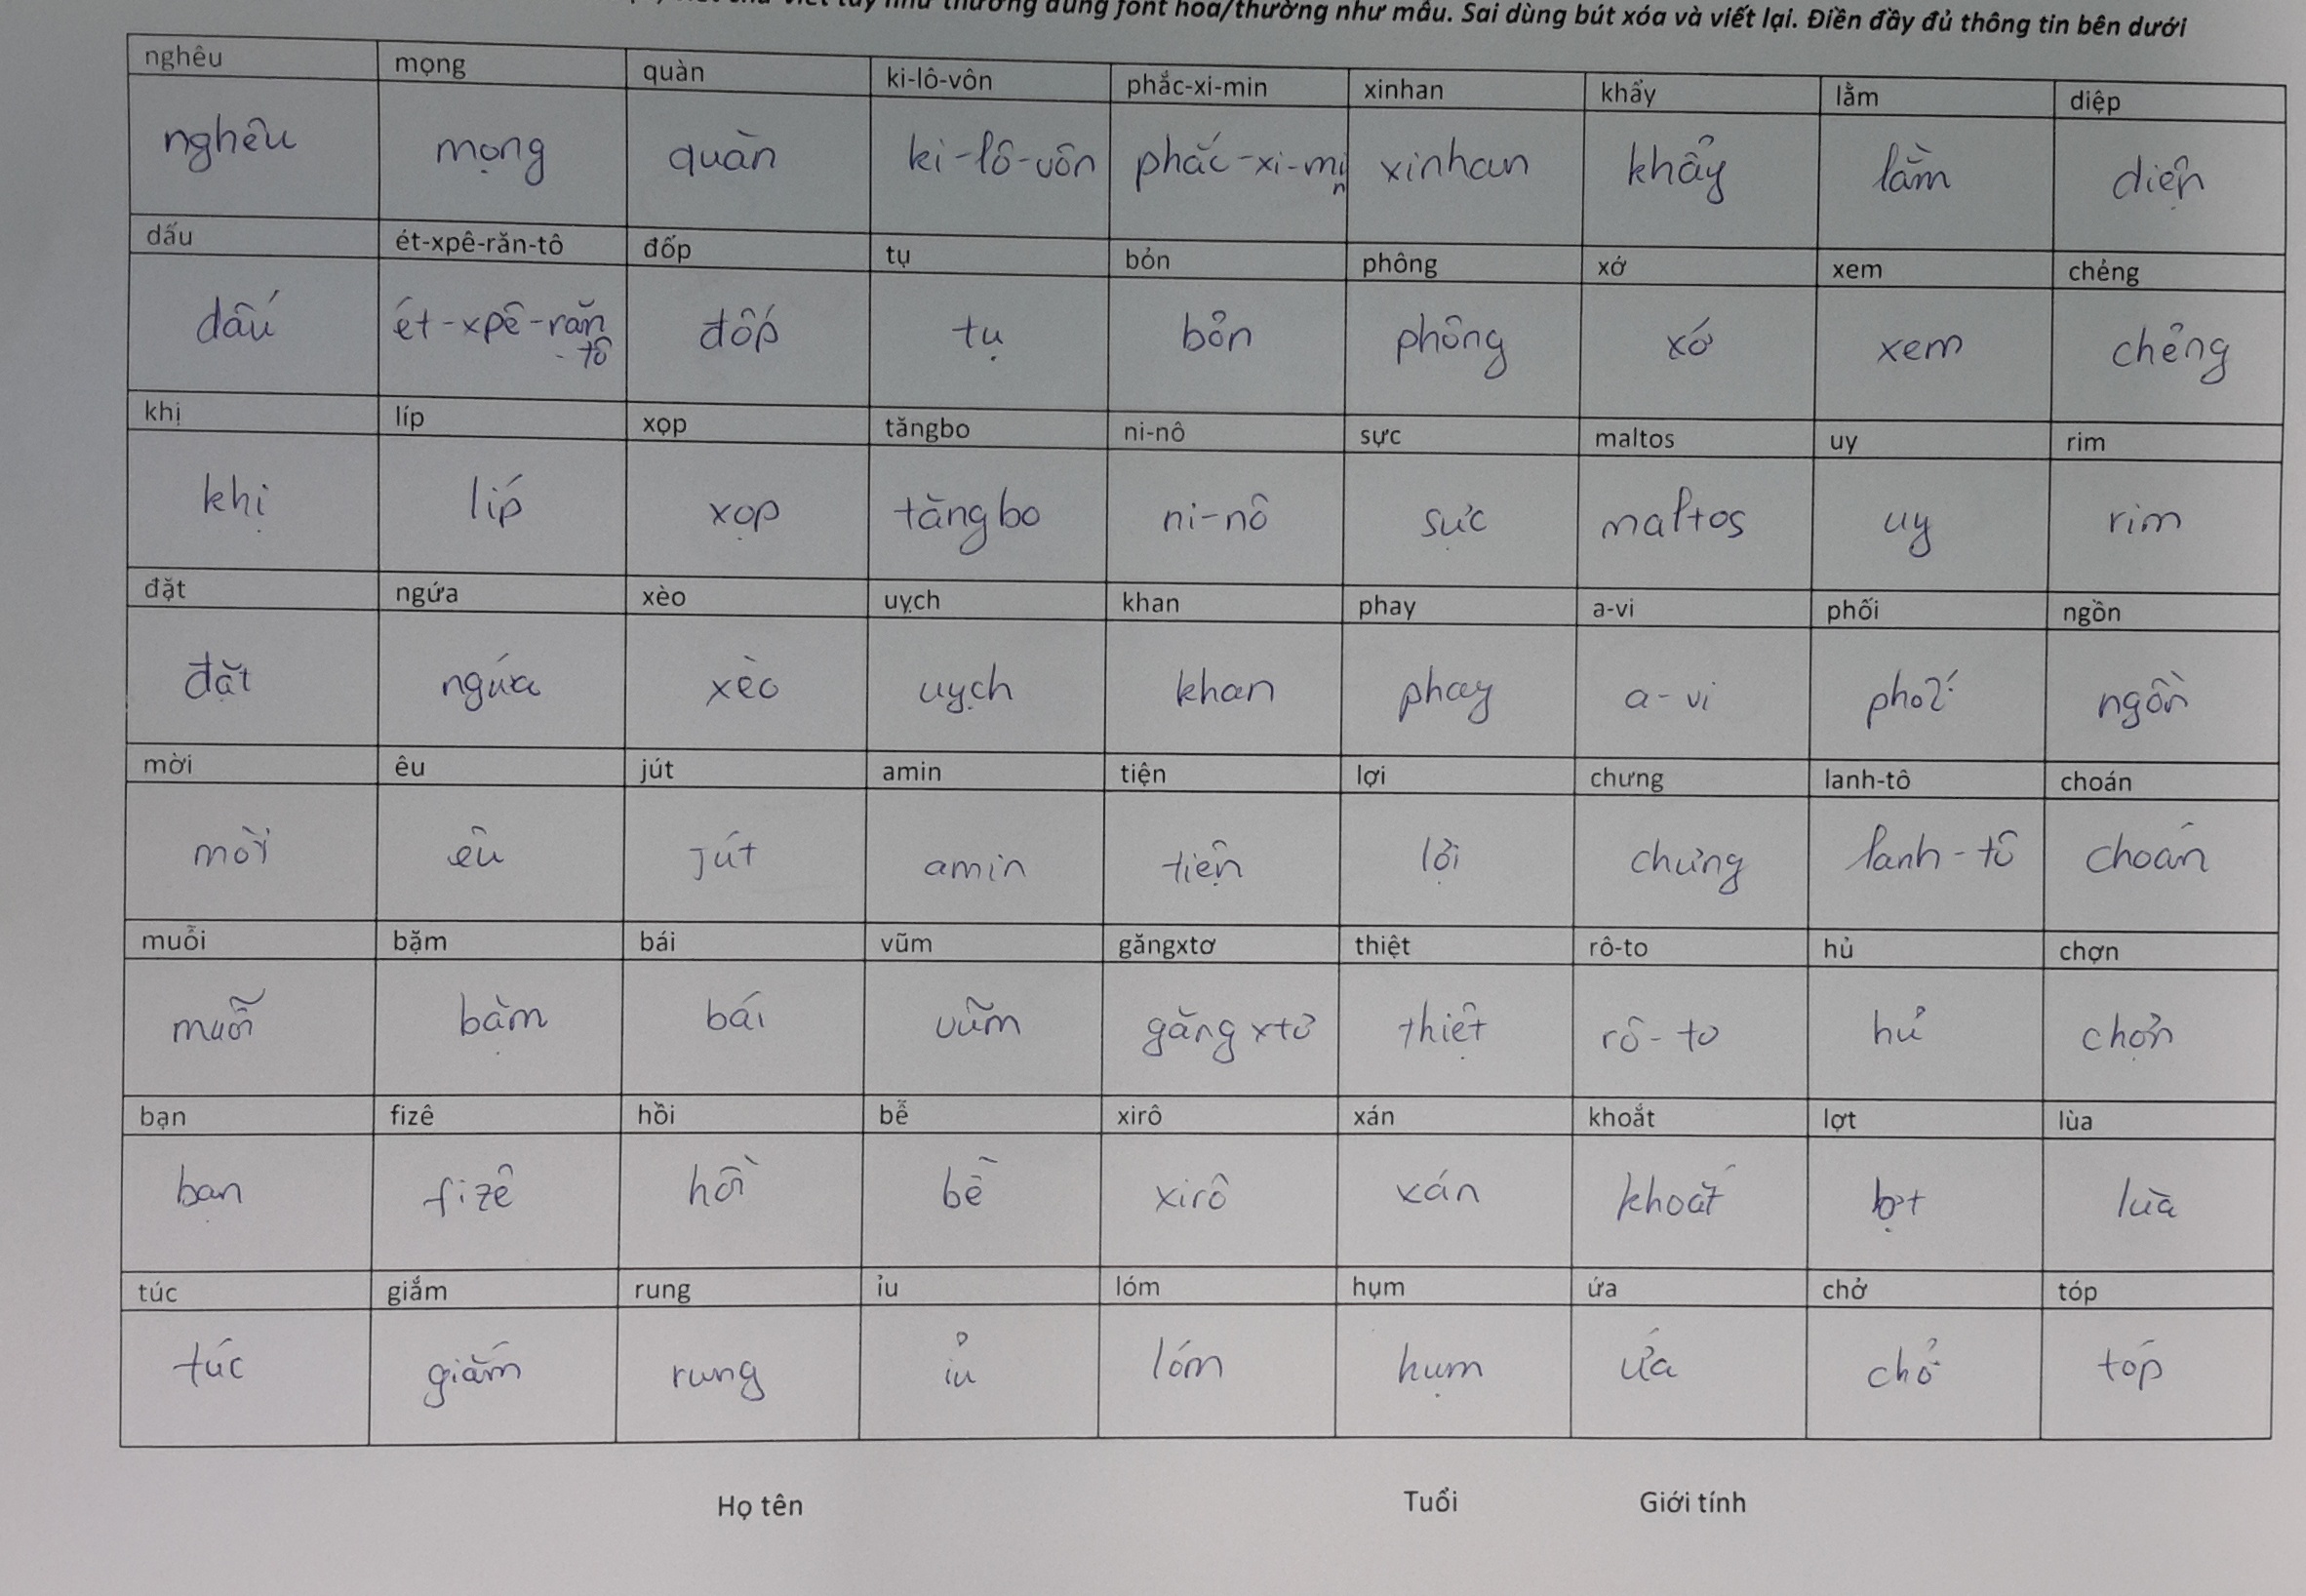 như thường dùng font hoa/thường như mẫu. Sai dùng bút xóa và viết lại. Điền đầy đủ thông tin bên dưới
nghêu mọng quàn ki-lô-vôn phắc-xi-min xinhan khẩy lằm diệp
nghêu mọng quàn ki-lô-vôn phắc-xi-min xinhan khẩy lằm diệp
dấu ét-xpê-răn-tô đốp tụ bỏn phông xớ xem chẻng
dấu ét-xpê-răn-tô đốp tụ bỏn phông xớ xem chẻng
khị líp xọp tăngbo ni-nô sực maltos uy rim
khị líp xọp tăngbo ni-nô sực maltos uy rim
đặt ngứa xèo uỵch khan phay a-vi phối ngồn
đặt ngứa xèo uỵch khan phay a-vi phối ngồn
mời êu jút amin tiện lợi chưng lanh-tô choán
mời êu jút amin tiện lợi chưng lanh-tô choán
muỗi bặm bái vũm găngxtơ thiệt rô-to hủ chợn
muỗi bặm bái vũm găngxtơ thiệt rô-to hủ chợn
bạn fizê hồi bễ xirô xán khoắt lợt lùa
bạn fizê hồi bễ xirô xán khoắt lợt lùa
túc giắm rung ỉu lóm hụm ứa chở tóp
túc giắm rung ỉu lóm hụm ứa chở tóp
Họ tên Tuổi Giới tính